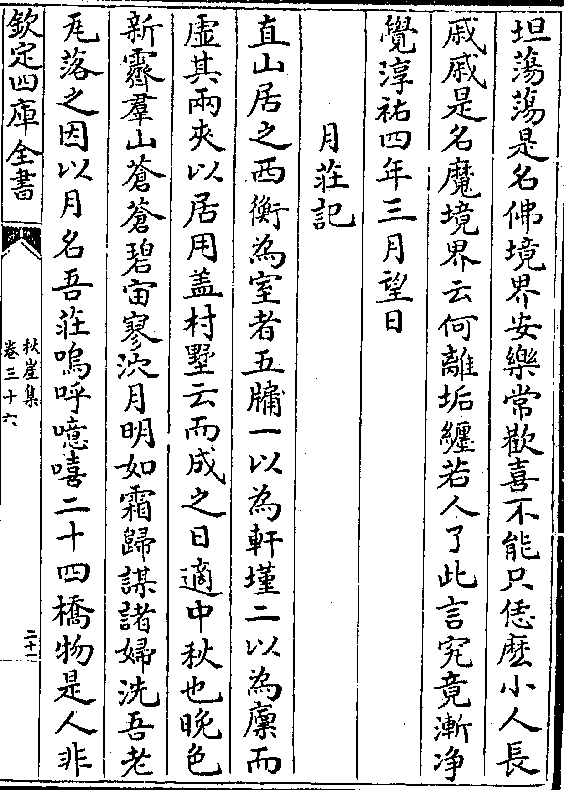 坦蕩蕩是名佛境界安樂常歡喜不能只恁麽小人長
戚戚是名魔境界云何離垢纏若人了此言究竟漸净
覺淳祐四年三月望日
月莊記
直山居之西衡為室者五牗一以為軒墐二以為廩而
虚其兩夾以居用盖村墅云而成之日適中秋也晚色
新霽羣山蒼蒼碧宙寥泬月明如霜歸謀諸婦洗吾老
瓦落之因以月名吾莊嗚呼噫嘻二十四橋物是人非
欽定四庫全書
秋崖集
卷三十六
二十一